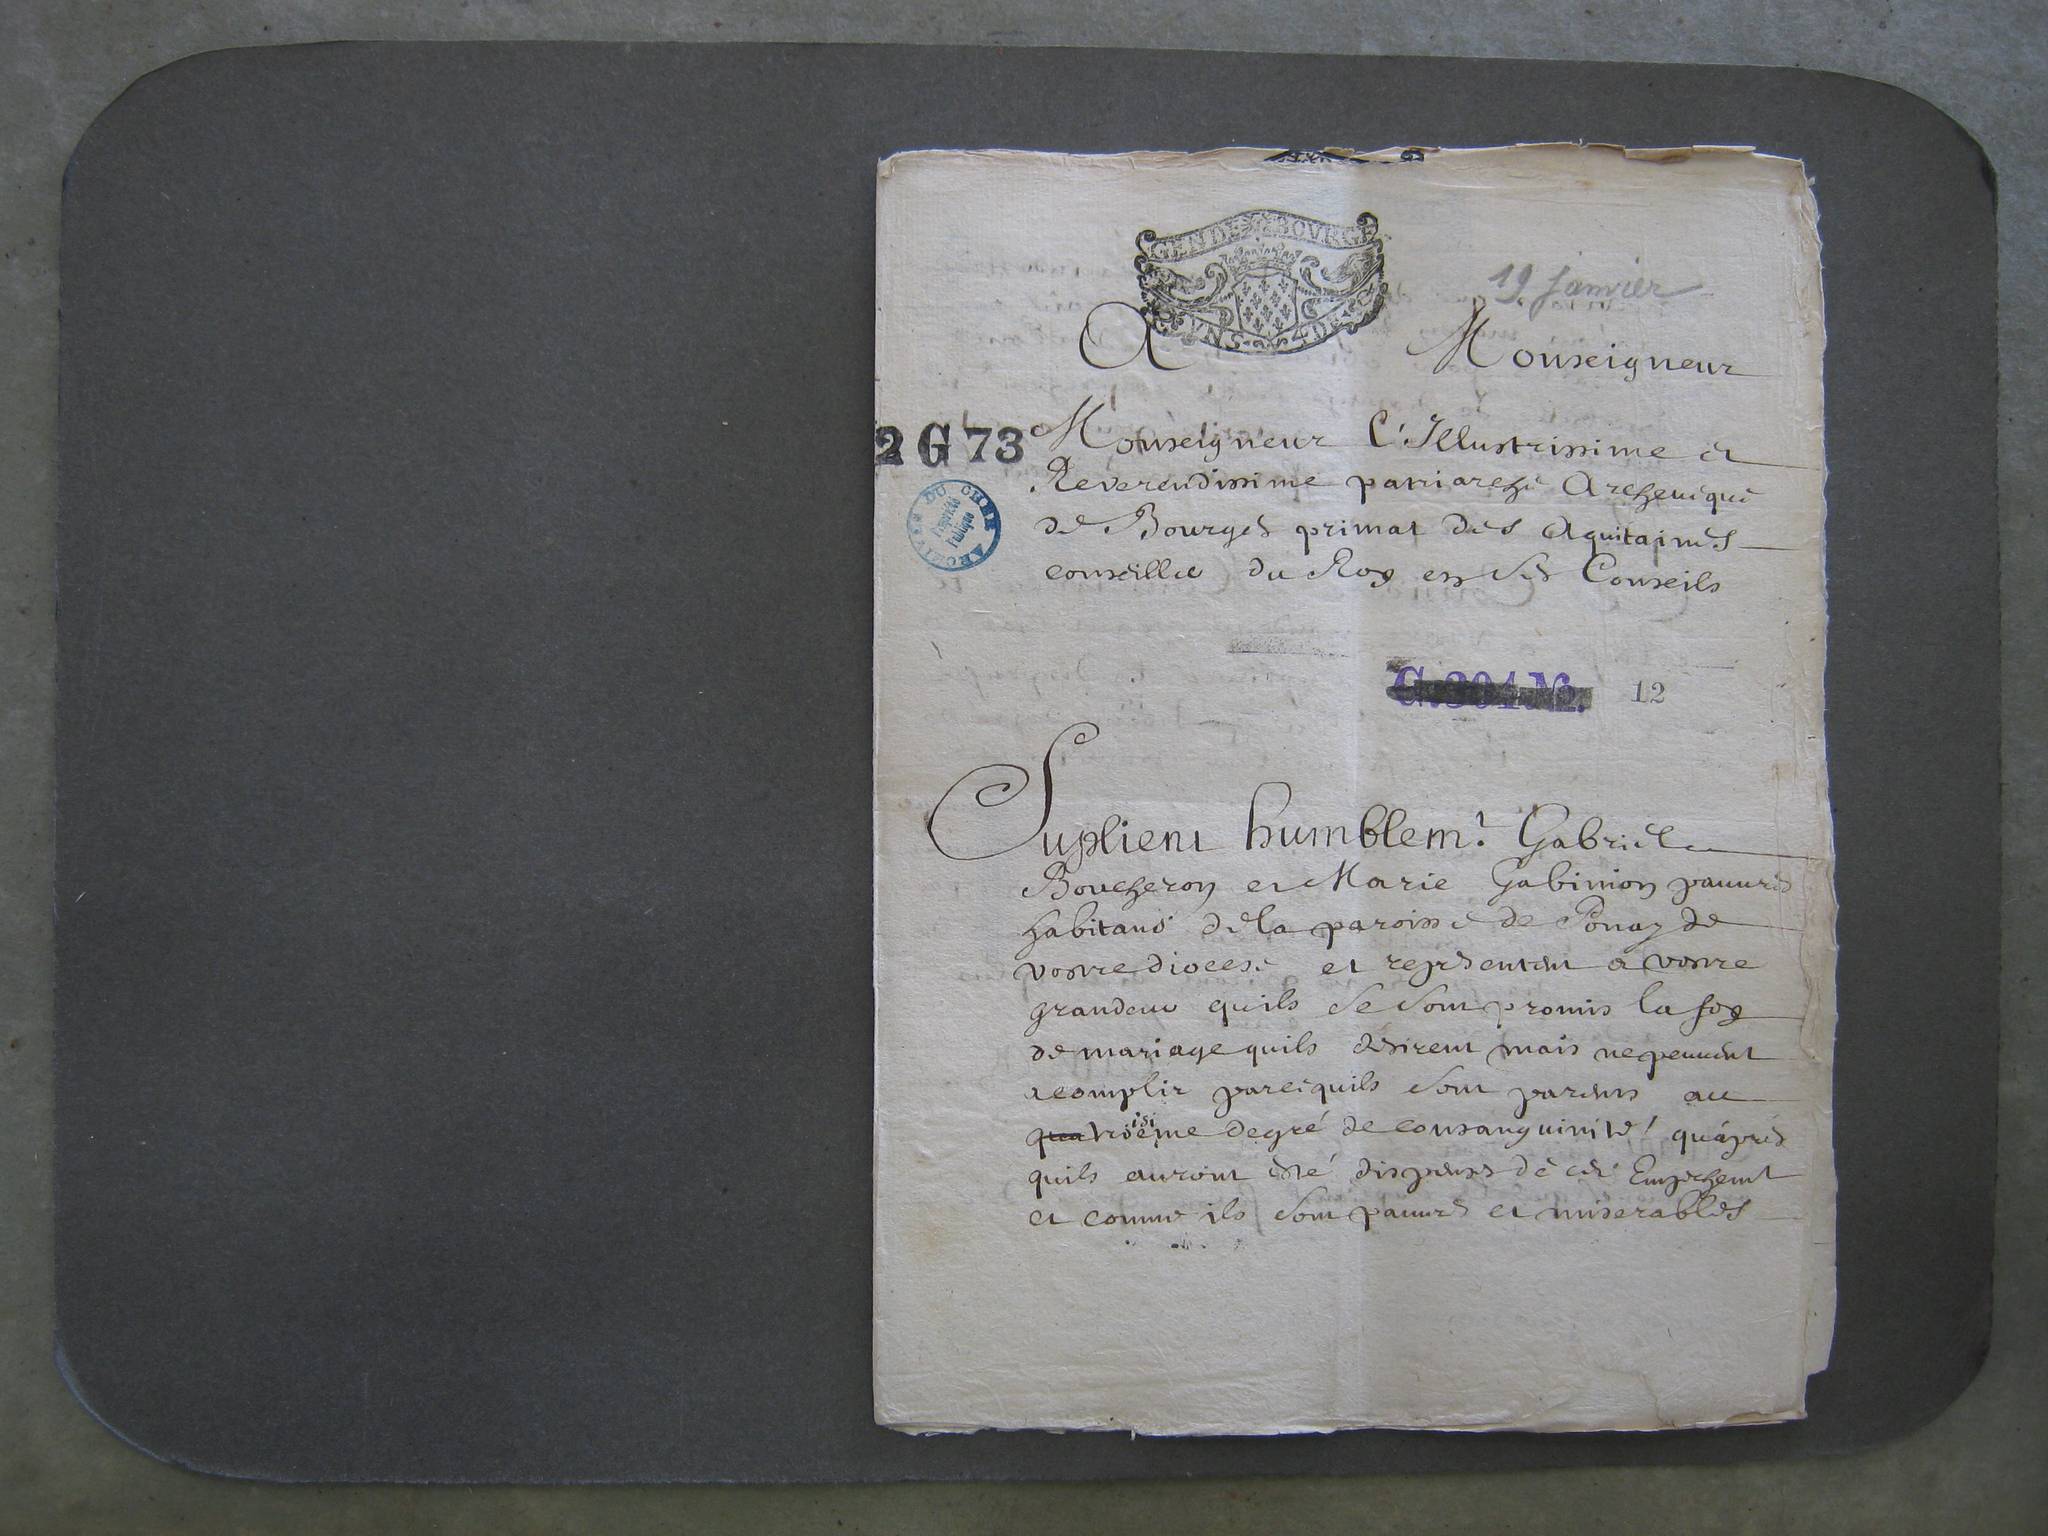 GEN DE BOVRGE
VN S 4 DE
19. janvier
A Monseigneur
2 G 73
Monseigneur L'Illustrissime et
Reverendissime patriarche Archeueque
de Bourges primat des Aquitaines
conseiller du Roy en ses Conseils
ARCHIVES DU CHER
Propriété
Publique
G.304 No. 12
Suplient humblemt. Gabriel
Boucheron et Marie Gabinion pauures
habitans de la paroisse de Ponay de
vostre diocese et representent a vostre
grandeur quils se sont promis la foy
de mariage quils desirent mais ne peuuent
acomplir parcequils sont parens au
qua troisieme degré de consanguinité quápres
quils auront esté dispensés de cet Empechemt
et comme ils sont pauures et miserables